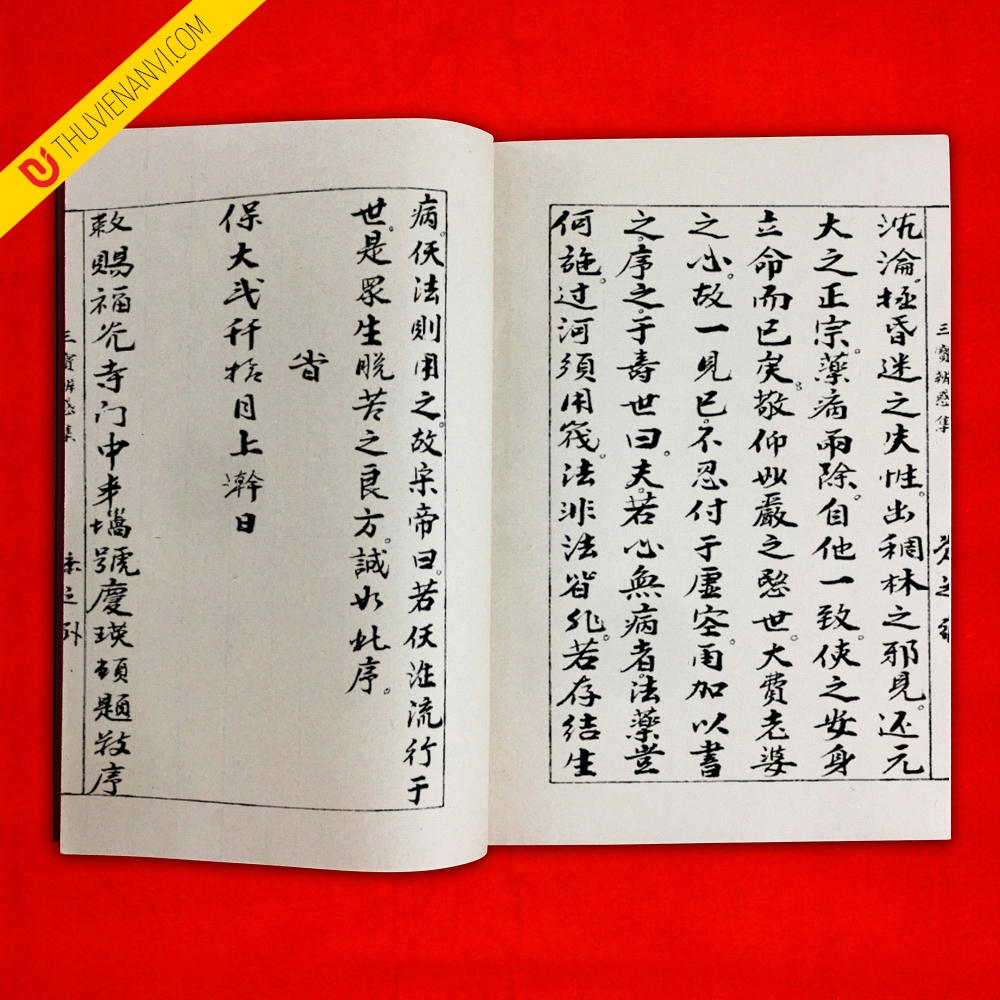 三寶辨惑集
沉淪。極昏迷之失性。出稠林之邪見。还元
大之正宗。藥病両除。自他一致。使之安身
立命而已矣。敬仰妙嚴之愍世。大費老婆
之心。故一見已。不忍付于虛空。用加以書
之。序之。于壽世曰。夫。若心無病者。法藥豈
何施。过河須用筏。法非法皆非。若存結生
病。仸法則用之。故宋帝曰。若仸法流行于
世。是眾生脫苦之良方。誠如此序。
省
保大弍秊拾月上澣日
敕賜福光寺门中號慶瑛頓題敬序
三寶辨惑集
THUVIENANVI.COM